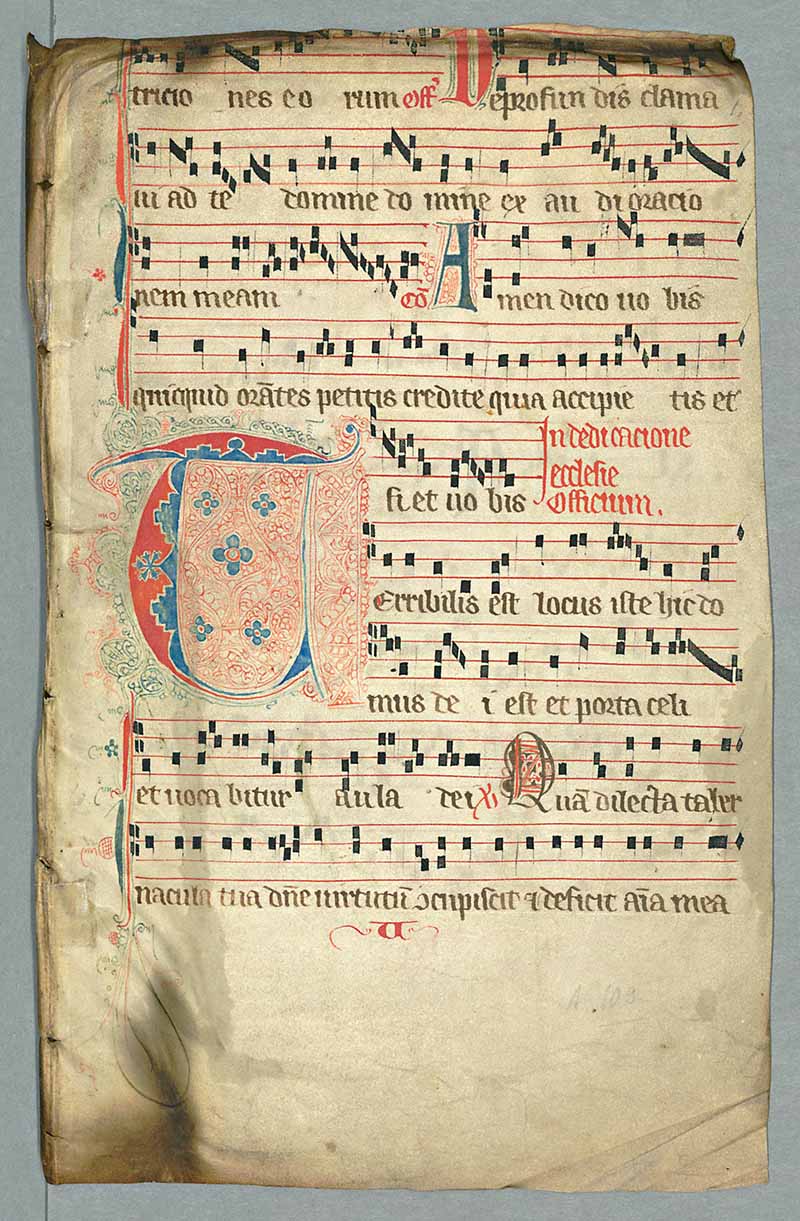 tricio nes eo rum off̄ Deprofun dis clama
ui ad te domine do mine ex au di oracio
nem meam cō Amen dico uo bis
quicquid orātes petitis credite quia accipie tis et
fi et uo bis In dedicacione
ecclesie
Officium.
TErribilis est locus iste hic do
mus de i est et porta celi
et uoca bitur aula dei Quā dilecta taber
nacula tua dn̄e uirtutū ↄcupiscit ⁊ deficit aīa mea
A 103